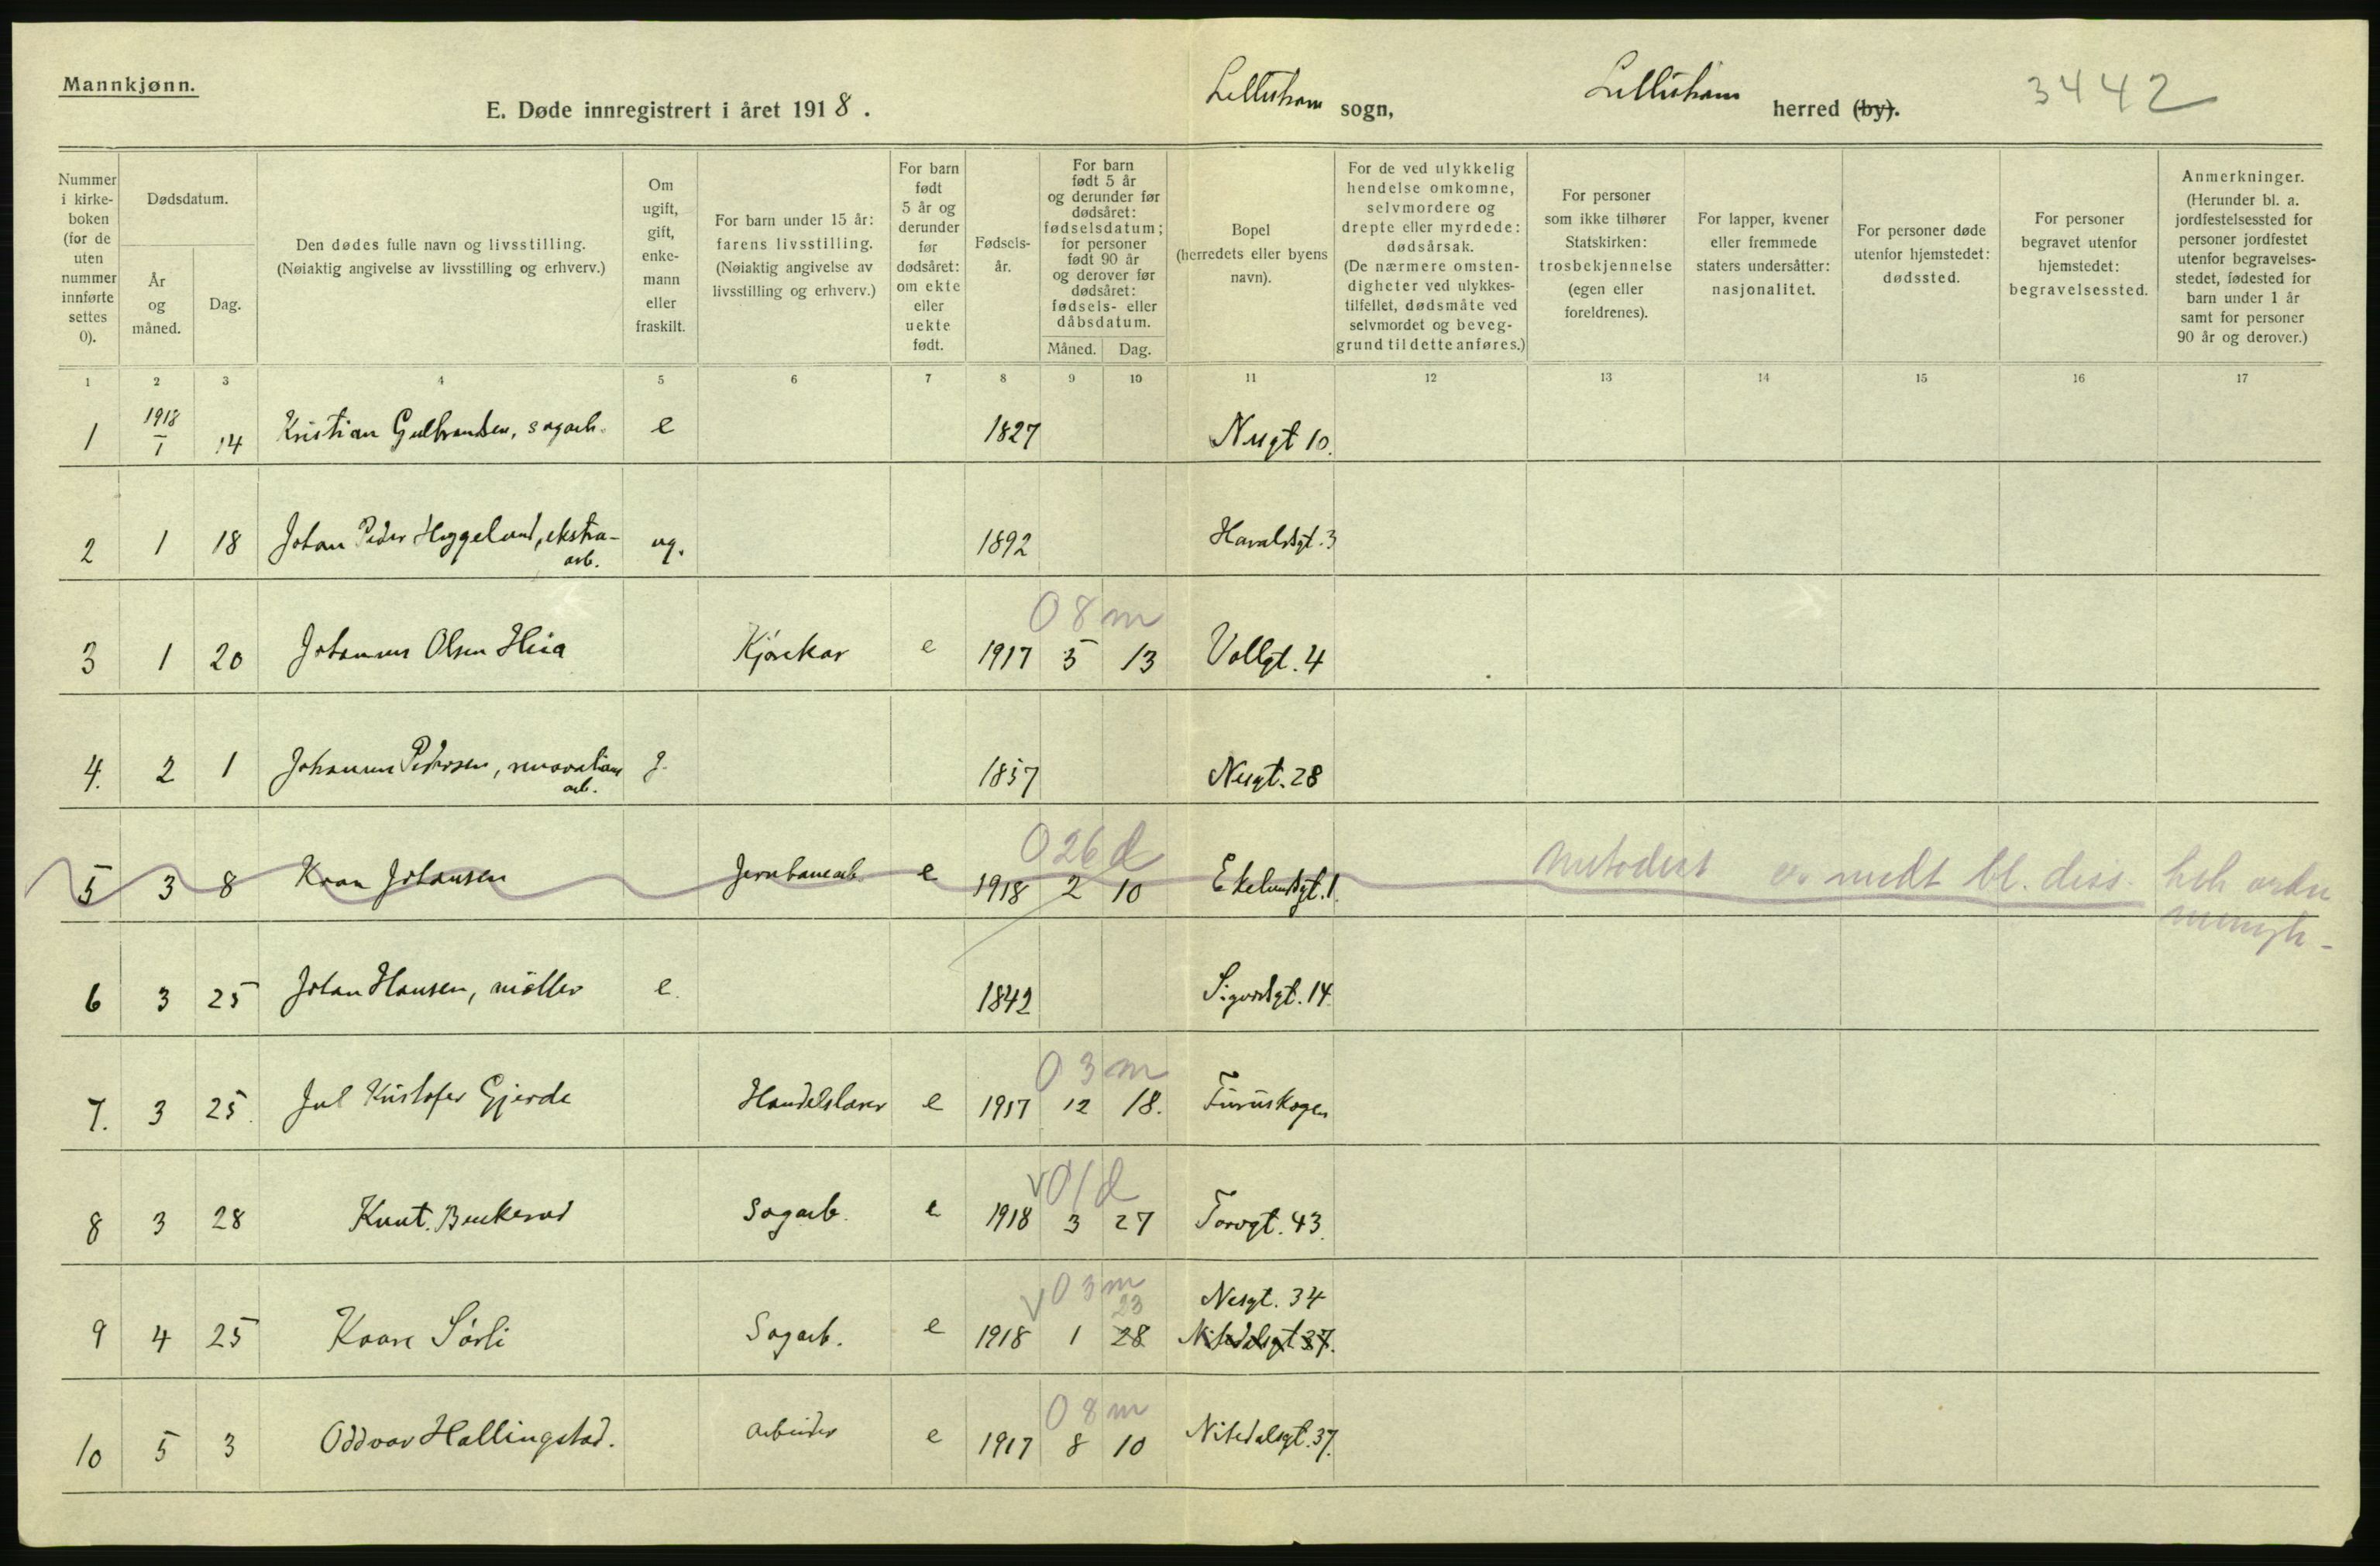 Mannkjønn.
E. Døde innregistrert i året 1918.
Lillestrøm sogn,
Lillestrøm herred (by).
3442
Nummer i kirke-boken (for de uten nummer innførte settes 0).
Dødsdatum.
År og måned.
Dag.
Den dødes fulle navn og livsstilling.
(Nøiaktig angivelse av livsstilling og erhverv.)
Om ugift, gift, enke-mann eller fraskilt.
For barn under 15 år:
farens livsstilling.
(Nøiaktig angivelse av livsstilling og erhverv.)
For barn født 5 år og derunder før dødsåret: om ekte eller uekte født.
Fødsels-år.
For barn født 5 år og derunder før dødsåret: fødselsdatum; for personer født 90 år og derover før dødsåret: fødsels- eller dåbsdatum.
Måned.
Dag.
Bopel
(herredets eller byens navn).
For de ved ulykkelig hendelse omkomne, selvmordere og drepte eller myrdede: dødsårsak.
(De nærmere omsten-digheter ved ulykkes-tilfellet, dødsmåte ved selvmordet og beveg-grund til dette anføres.)
For personer som ikke tilhører Statskirken: trosbekjennelse (egen eller foreldrenes).
For lapper, kvener eller fremmede staters undersåtter: nasjonalitet.
For personer døde utenfor hjemstedet: dødssted.
For personer begravet utenfor hjemstedet: begravelsessted.
Anmerkninger.
(Herunder bl. a. jordfestelsessted for personer jordfestet utenfor begravelses-stedet, fødested for barn under 1 år samt for personer 90 år og derover.)
1 2 3 4 5 6 7 8 9 10 11 12 13 14 15 16 17
1 1918 I 14 Kristian Gulbrandsen, sagarb. e 1827 Nesgt 10.
2 1 18 Johan Peder Heggelund, ekstra-arb. ug. 1892 Haraldsgt. 3
0 8 m
3 1 20 Johannes Olsen Heia Kjørekar e 1917 5 13 Vollgt. 4
4. 2 1 Johannes Pedersen, arb. g. 1857 Nesgt. 28
0 26 d
5 3 8 Johansen Jernbanearb. e 1918 2 10 Ekelundsgt. 1. Metodist bl. diss.
6 3 25 Johan Hansen, møller e. 1842 Sigurdsgt. 14.
0 3 m
7. 3 25. Jul Kristofer Gjerde Handelslærer e 1917 12 18. Furuskogen
V 0 1 d
8 3 28 Knut. Sagarb. e 1918 3 27 Torvgt. 43.
V 0 3 m
23 Nesgt. 34
9 4 25 Kaare Sørli Sagarb. e 1918 1 28 Nitedalsgt 37.
0 8 m
10 5 3 Oddvar Hallingstad. arbeider e 1917 8 10 Nitedalsgt. 37.